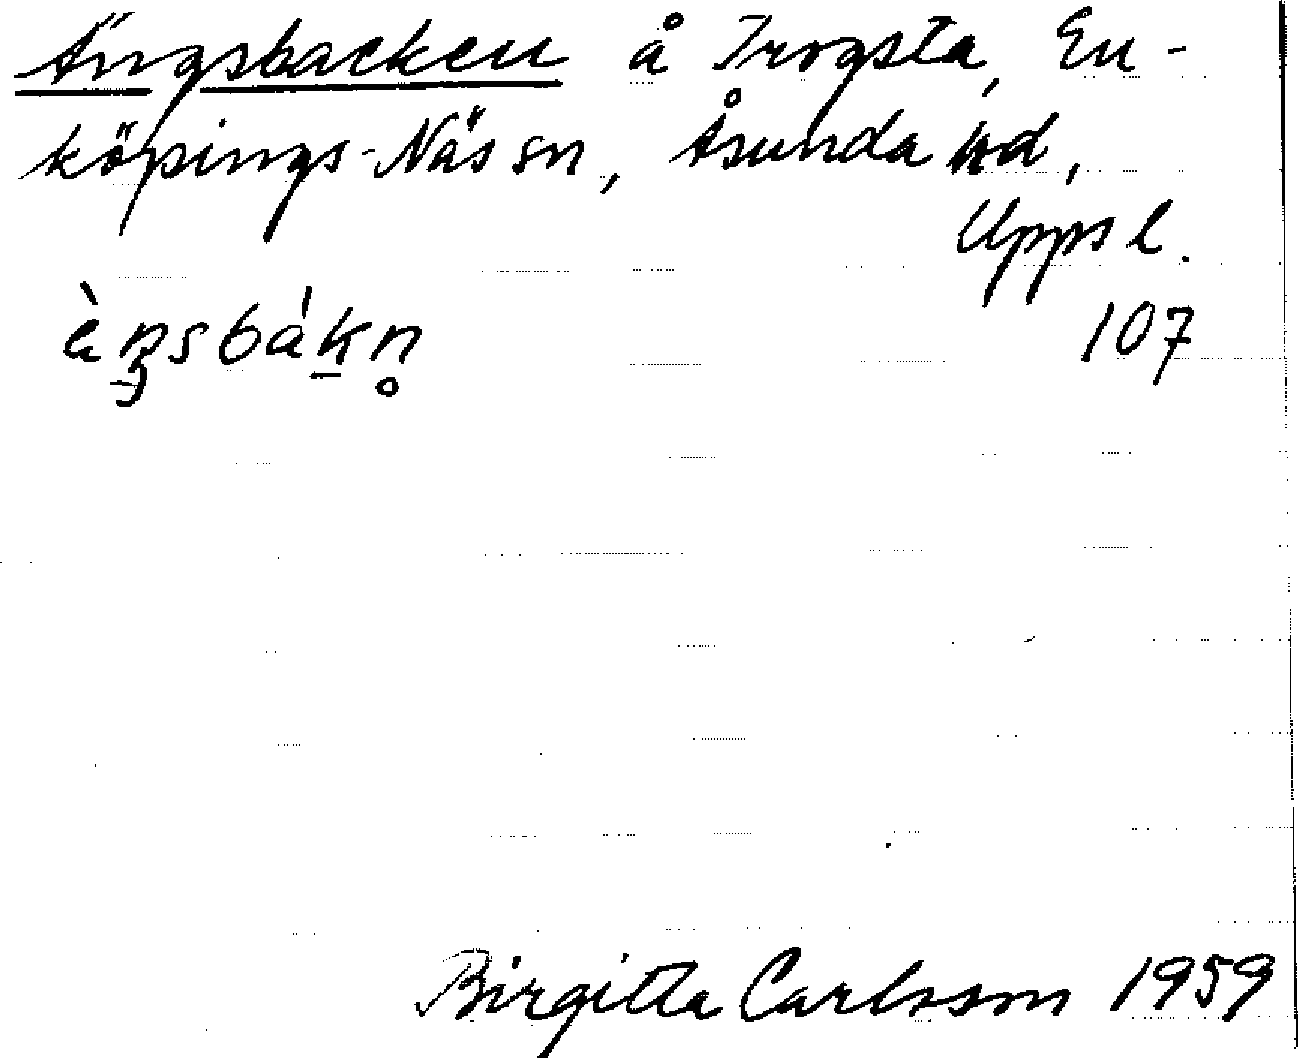 Ängsbacken å Trogsta, En-
köpings-Näs sn, Åsunda hd,
Upps l.
107
ὲŋsbák̠n̥
Birgitta Carlsson 1959